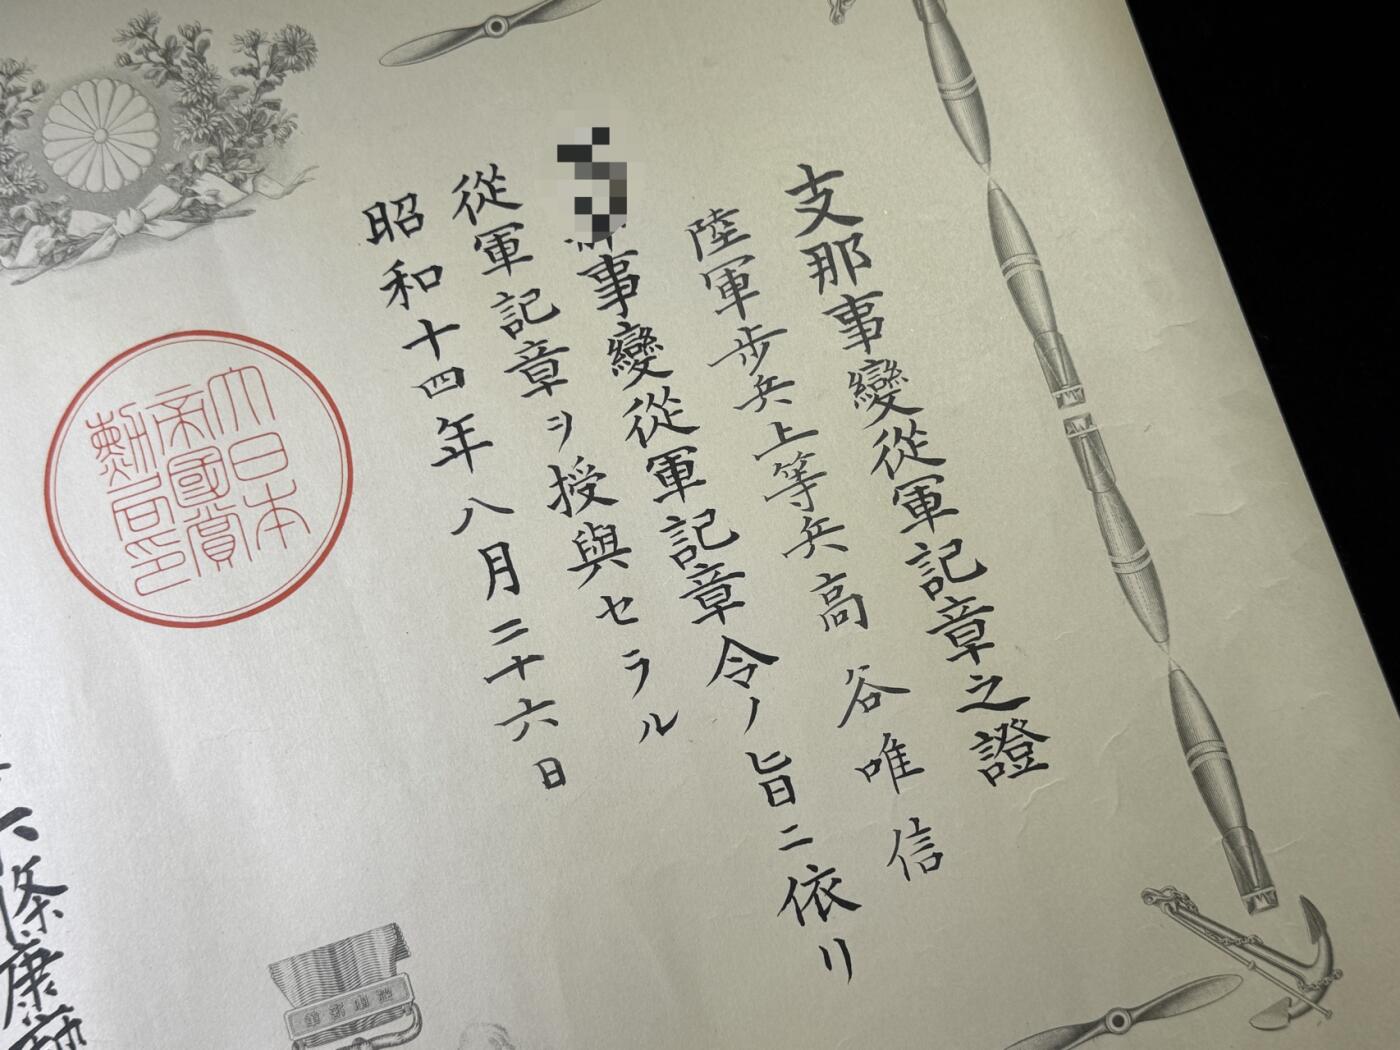 支那事變從軍記章之證
陸軍步兵上等兵高谷唯信
事變從軍記章令ノ旨ニ依リ
從軍記章ヲ授與セラル
昭和十四年八月二十六日
大日本
帝國賞
勲局印
條康